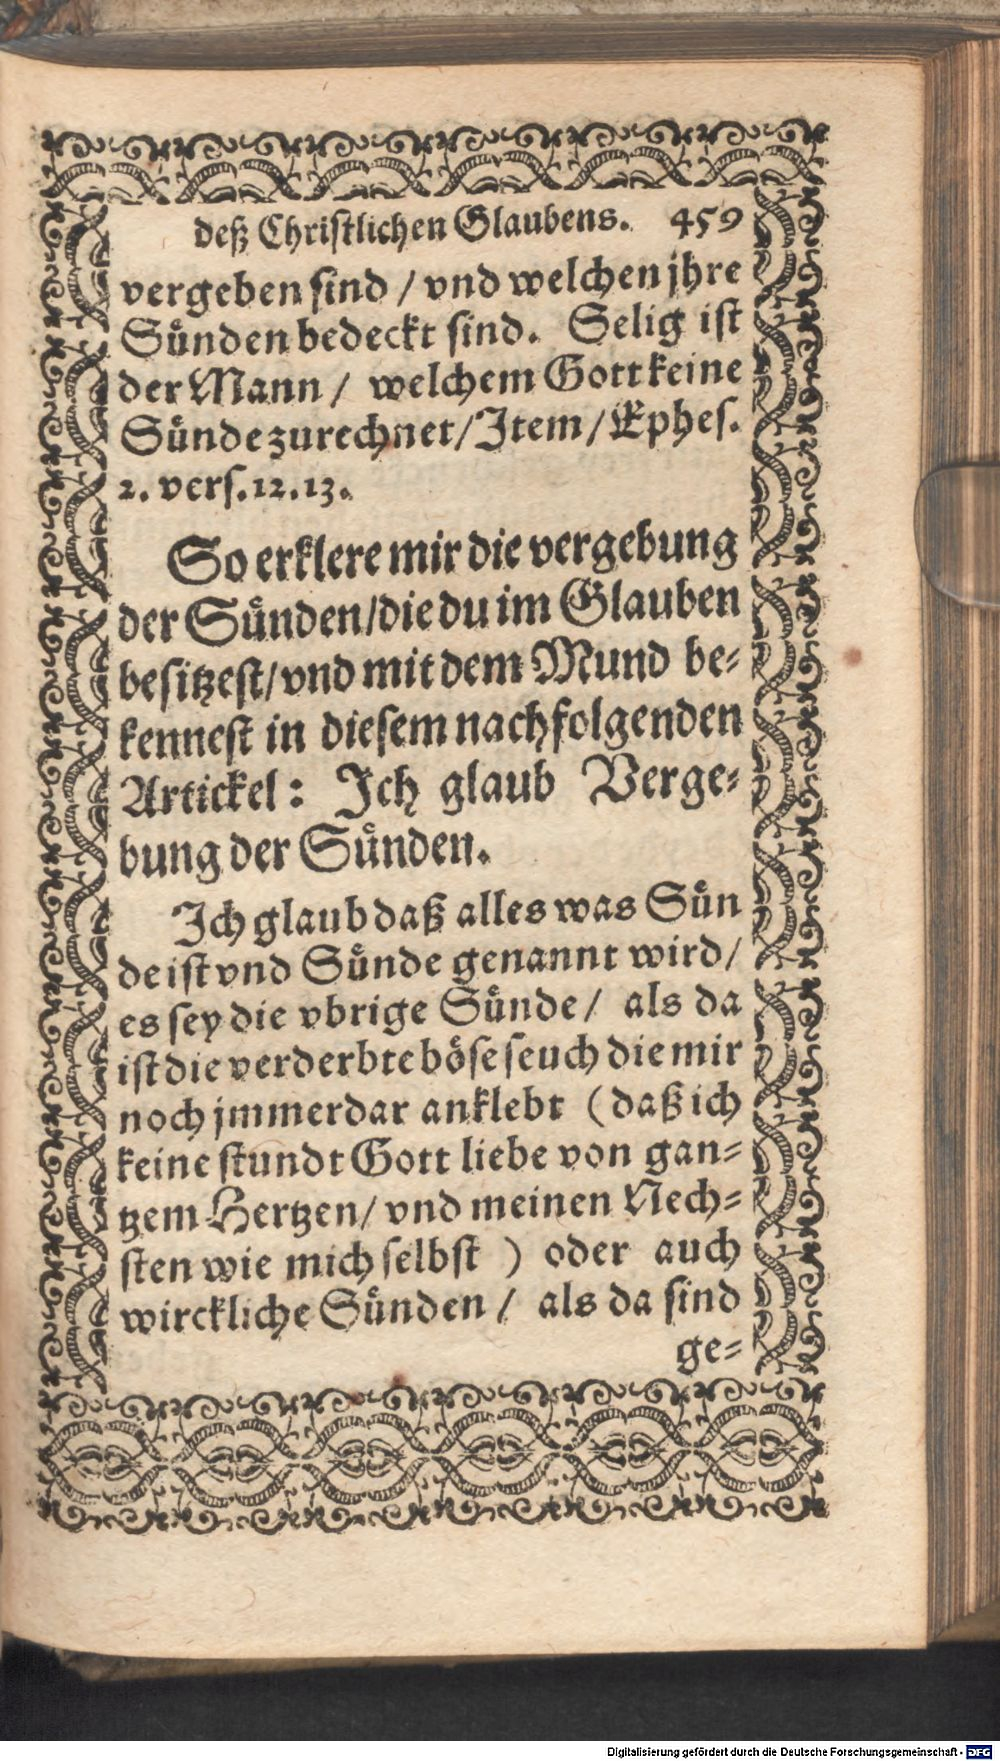 deß Christlichen Glaubens. 459
vergeben sind / vnd welchen jhre
Sünden bedeckt sind. Selig ist
der Mann / welchem Gott keine
Sünde zurechnet / Item / Ephes.
2. vers. 12. 13.
So erklere mir die vergebung
der Sünden / die du im Glauben
besitzest / vnd mit dem Mund be-
kennest in diesem nachfolgenden
Artickel: Ich glaub Verge-
bung der Sünden.
Ich glaub daß alles was Sün
de ist vnd Sünde genannt wird /
es sey die vbrige Sünde / als da
ist die verderbte böse seuch die mir
noch jmmerdar anklebt (daß ich
keine stundt Gott liebe von gan-
tzem Hertzen / vnd meinen Nech-
sten wie mich selbst ) oder auch
wirckliche Sünden / als da sind
ge-
Digitalisierung gefördert durch die Deutsche Forschungsgemeinschaft - DFG